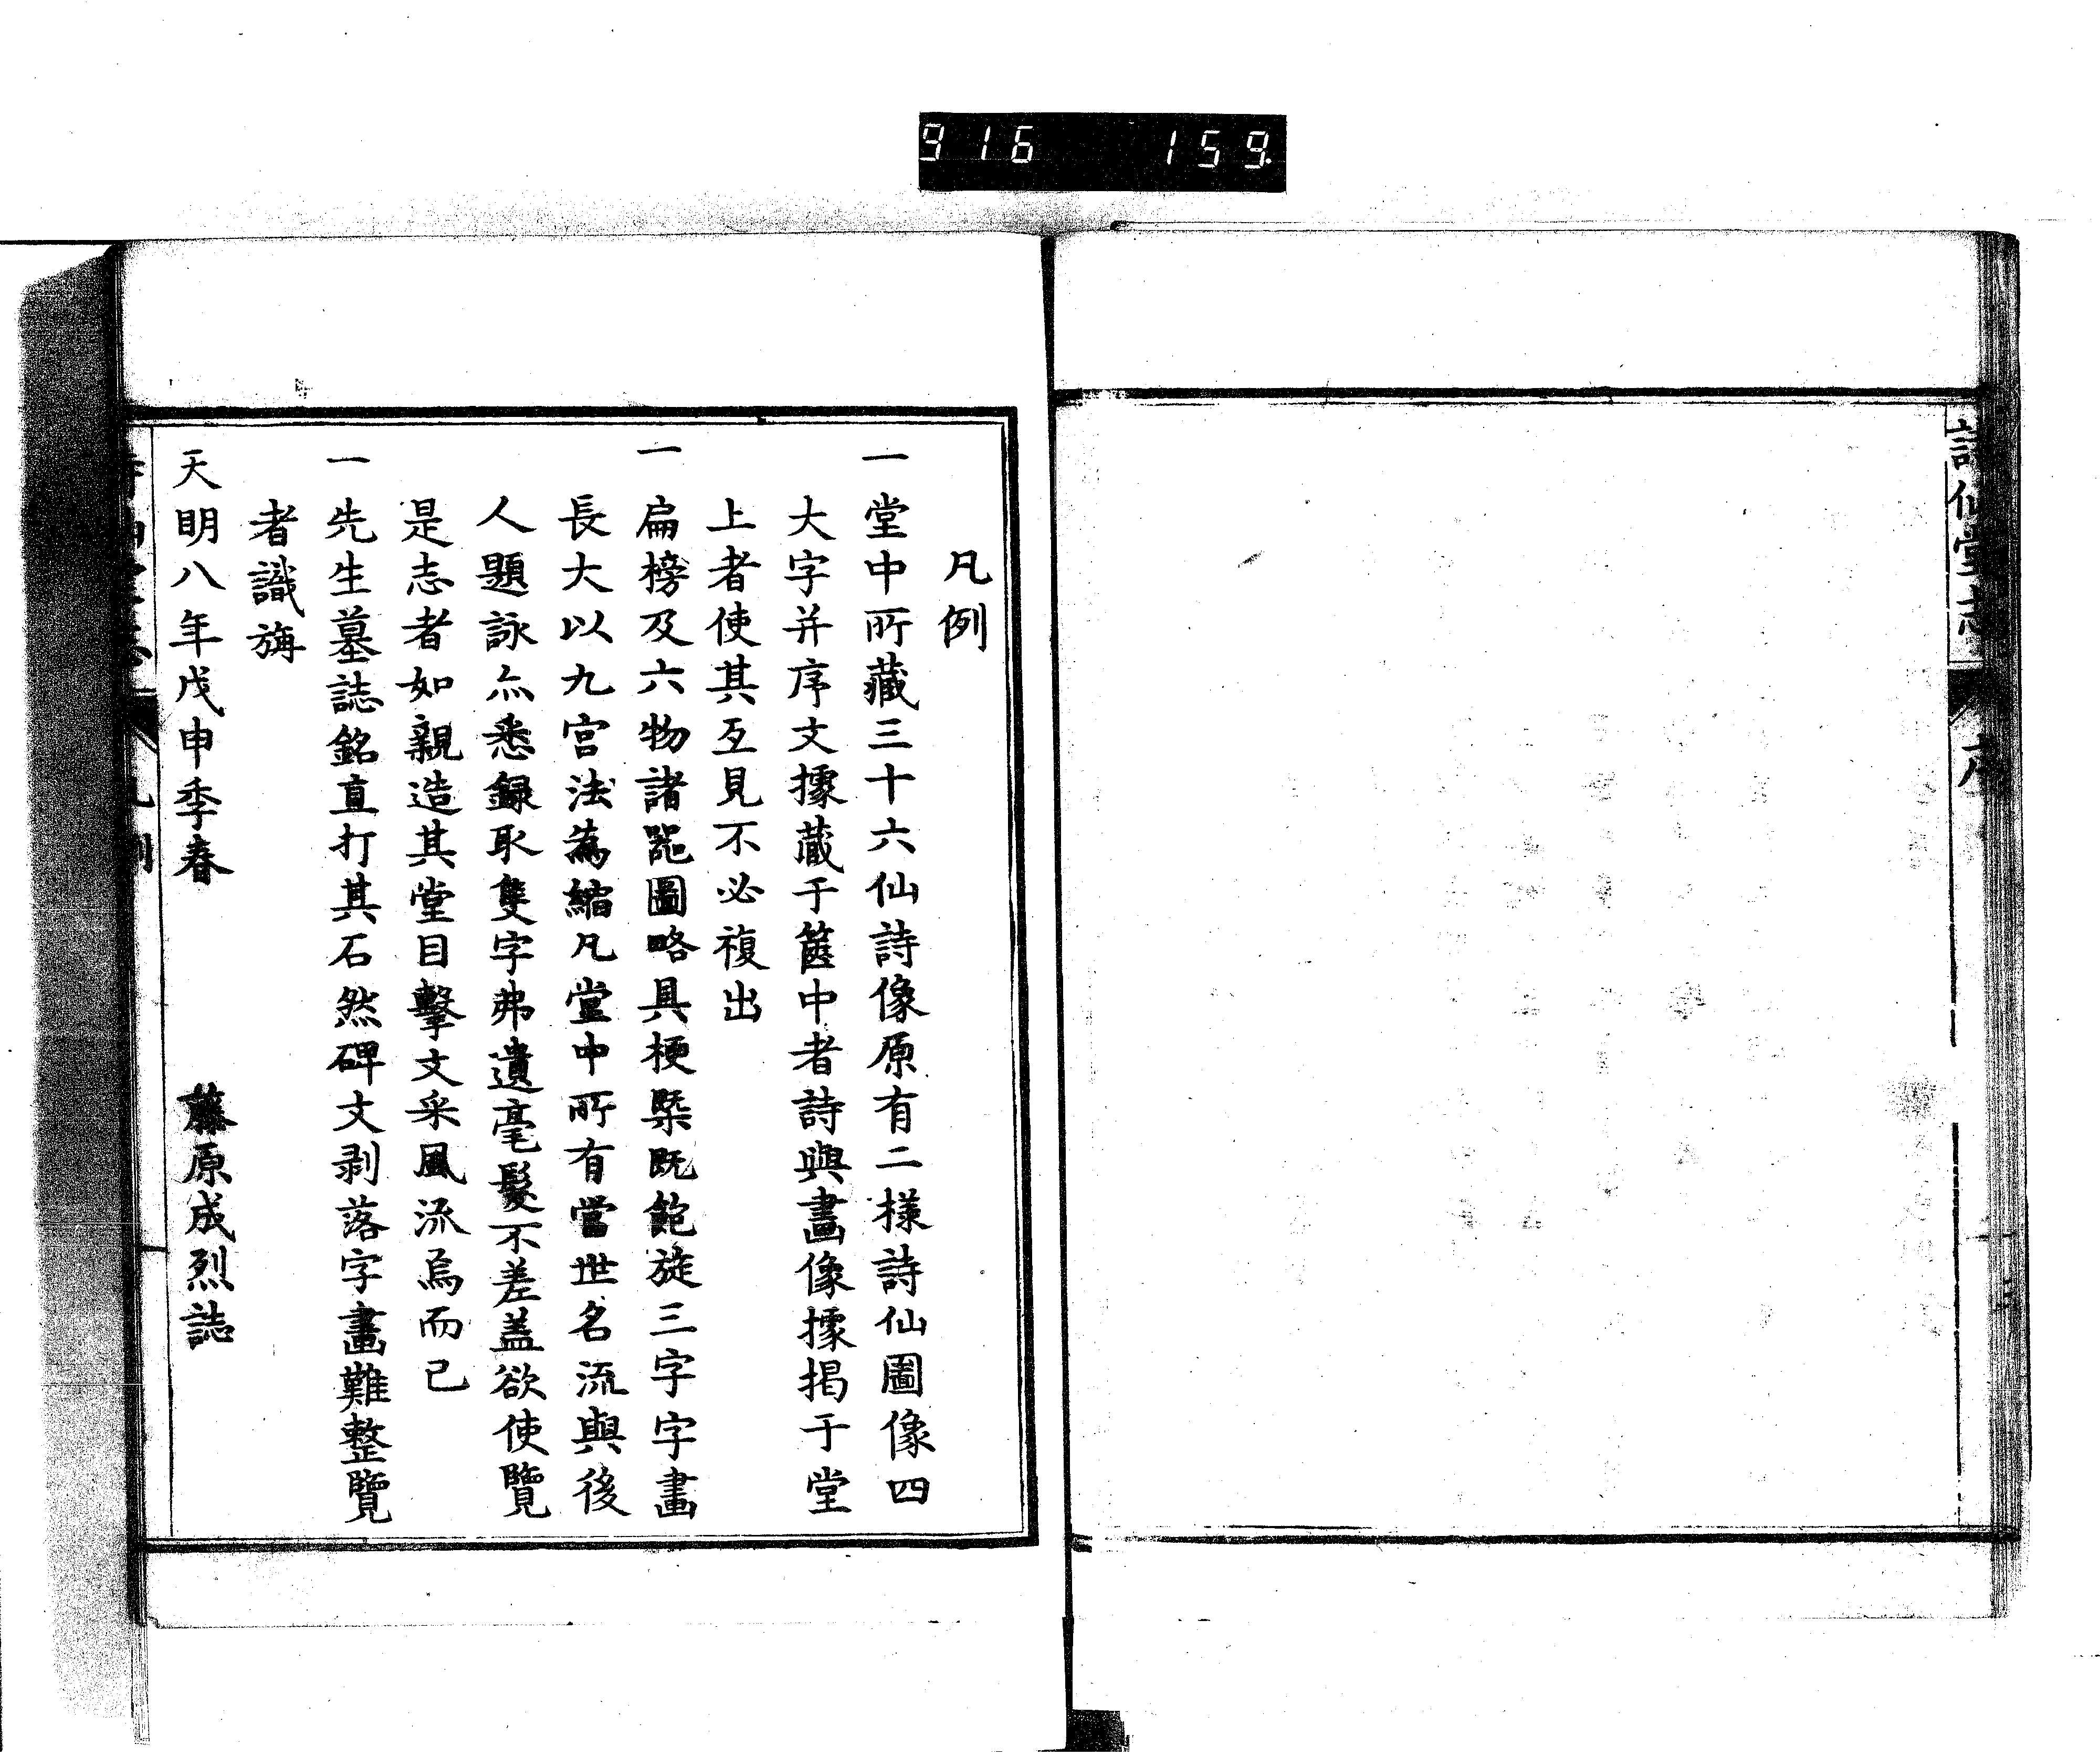 916 159
詩仙堂志 序
三
凡例
一堂中所藏三十六仙詩像原有二様詩仙圖像四
大字并序文據蔵于篋中者詩與畫像據掲于堂
上者使其互見不必複出
一扁榜及六物諸噐圖略具梗槩既飽旋三字字畫
長大以九宮法為縮凡堂中所有當世名流與後
人題詠亦悉録取隻字弗遺毫髮不差盖欲使覽
是志者如親造其堂目擊文采風流焉而已
一先生墓誌銘直打其石然碑文剥落字畫難整覽
者識旃
天明八年戊申季春 藤原成烈誌